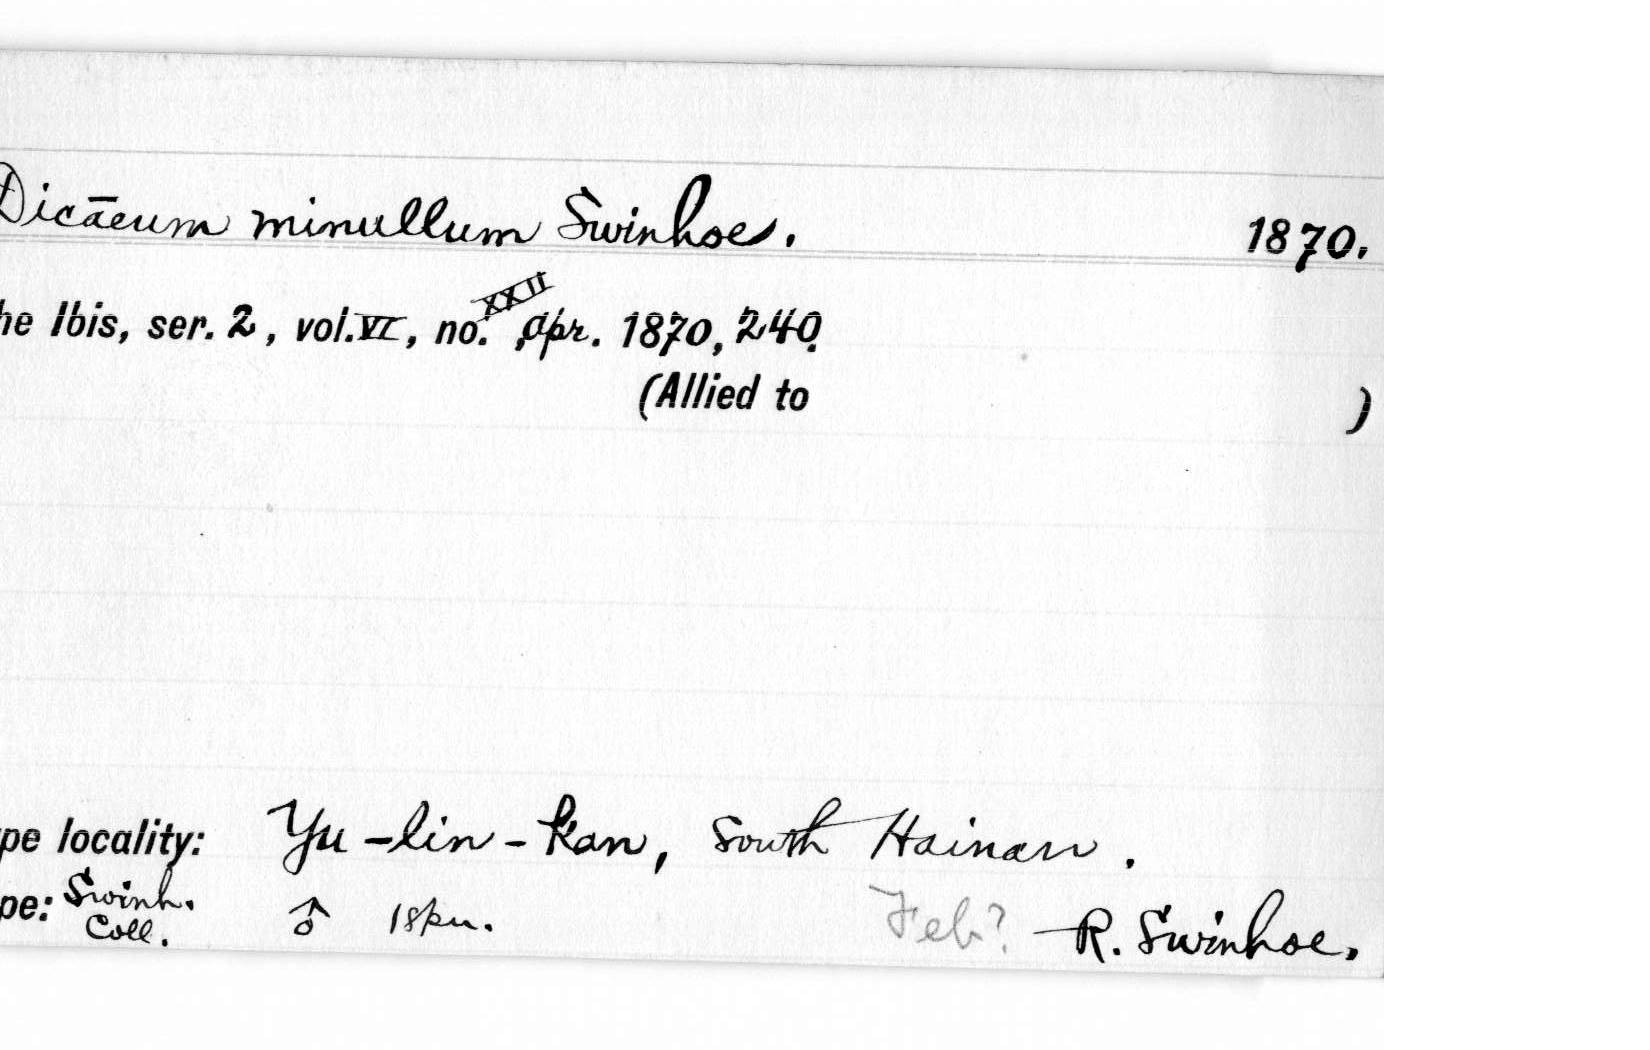 Dicāeum minullum Swinhoe. 1870.
he Ibis, ser. 2, vol. VI, no. XXII, Apr. 1870, 240.
(Allied to )
pe locality: Yu-lin-kan, South Hainan.
pe: Swinh. Coll. ♂ 1 spu. Feb? R. Swinhoe.